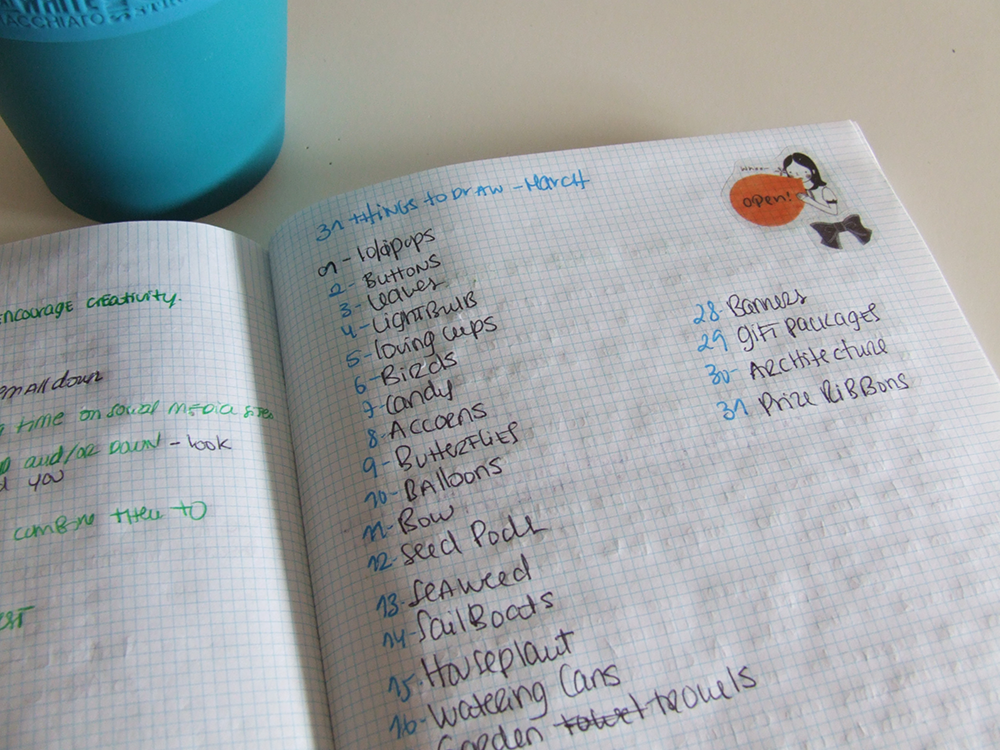 MACCHIATO
ENCOURAGE CREATIVITY.
small down
time on social media sites
and/or down - look
you
combine them to
31 things to draw - March
open!
01 - lolipops
2 - Buttons
3 - leaves
4 - LightBulb
5 - loving cups
6 - Birds
7 - candy
8 - Accorns
9 - Butterflies
10 - Balloons
11 - Bow
12 - seed Pods
13 - seaweed
14 - SailBoats
15 - Houseplant
16 - Watering Cans
Garden trowels
28 - Banners
29 gift packages
30 - Architecture
31 Prize Ribbons